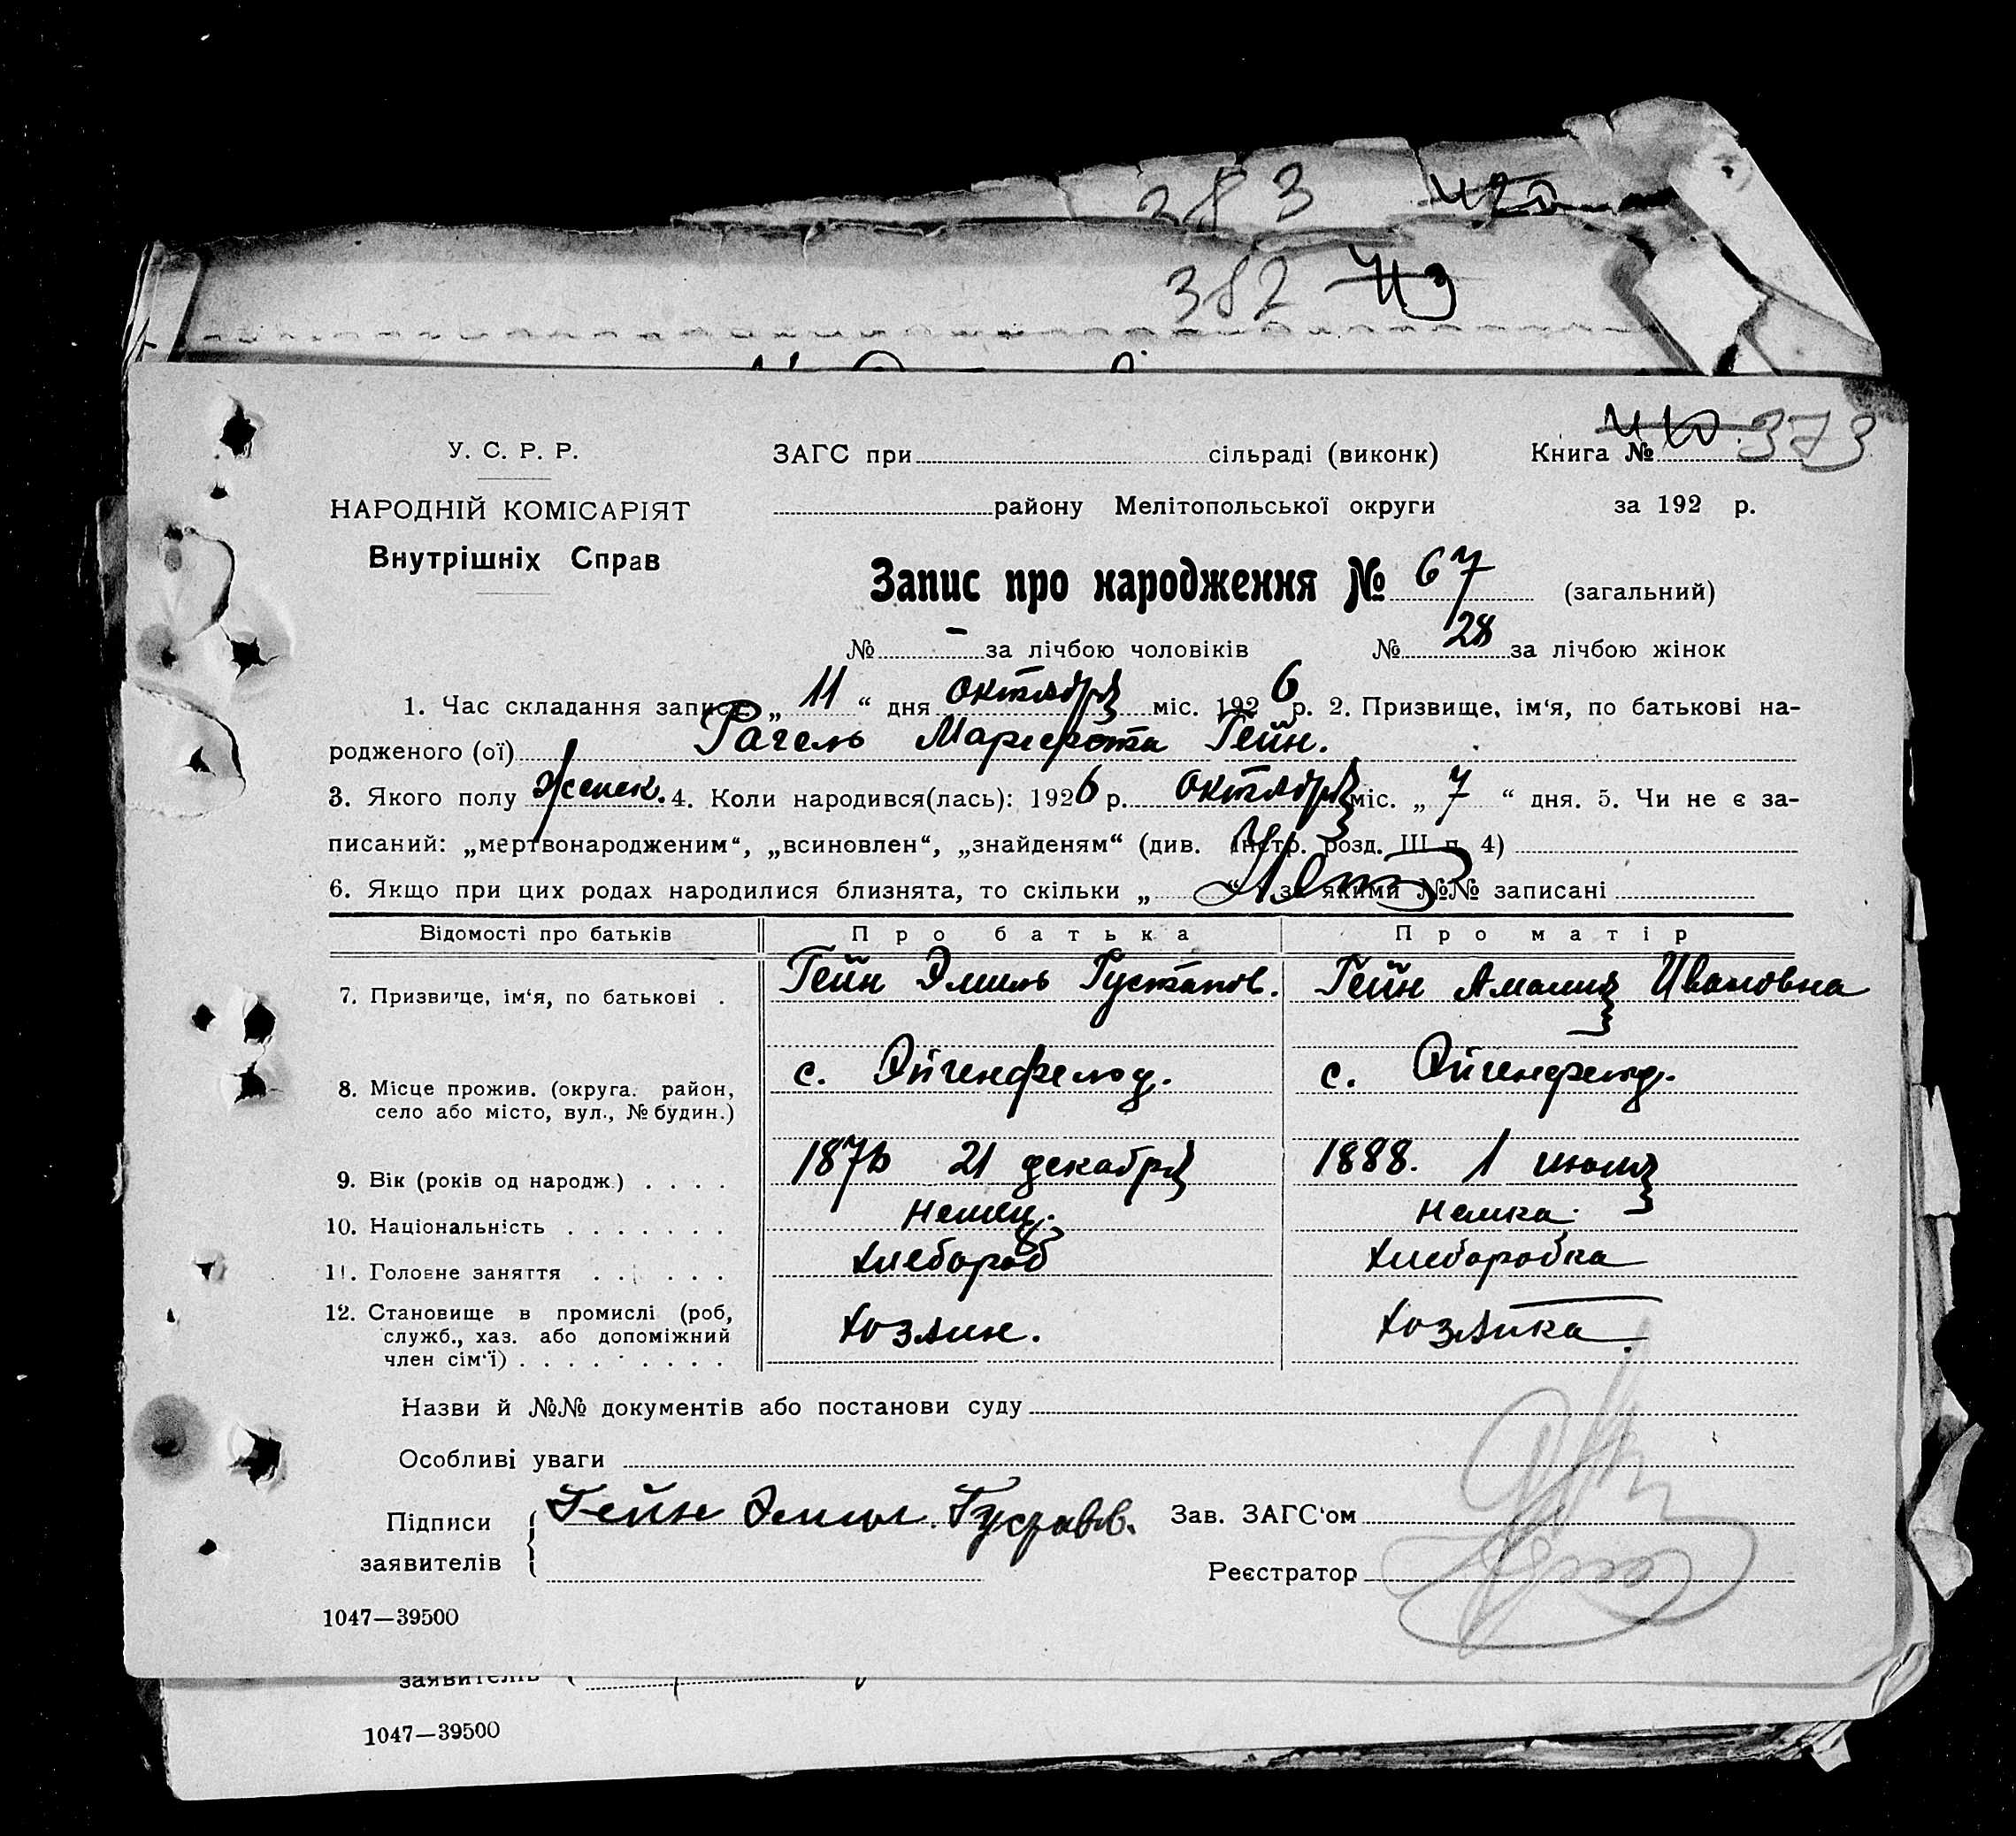 283 420
382 413
У. С. Р. Р.
ЗАГС при сільраді (виконк) Книга № 410. 373
НАРОДНІЙ КОМІСАРІЯТ
району Мелітопольської округи за 192 р.
Внутрішніх Справ
Запис про народження № 67 (загальний)
№ – за лічбою чоловіків № 28 за лічбою жінок
1. Час складання запису „ 11 “ дня октября міс. 1926 р. 2. Призвище, ім‘я, по батькові на-
родженого (ої) Рагель Маргерота Гейн.
3. Якого полу женск. 4. Коли народився(лась): 1926 р. октября міс. „ 7 “ дня. 5. Чи не є за-
писаний: „мертвонародженим“, „всиновлен“, „знайденям“ (див. інстр. розд. III п. 4)
6. Якщо при цих родах народилися близнята, то скільки „ “ за якими №№ записані
Нет
Відомості про батьків Про батька Про матір
7. Призвище, ім‘я, по батькові . Гейн Эмиль Густавов. Гейн Амалия Ивановна
8. Місце прожив. (округа. район, с. Эйгенфельд. с. Эйгенфельд.
село або місто, вул., № будин.)
9. Вік (років од народж.) . . . . 1876 21 декабря 1888. 1 июля
10. Національність . . . . . . . немец. немка.
11. Головне заняття . . . . . . хлебороб хлеборобка
12. Становище в промислі (роб, хозяин. хозяйка.
служб., хаз. або допоміжний
член сім‘ї) . . . . . . . . .
Назви й №№ документів або постанови суду
Особливі уваги
Підписи Гейн Эмил. Густавв. Зав. ЗАГС‘ом
заявителів Реєстратор
1047—39500
заявителів
1047—39500